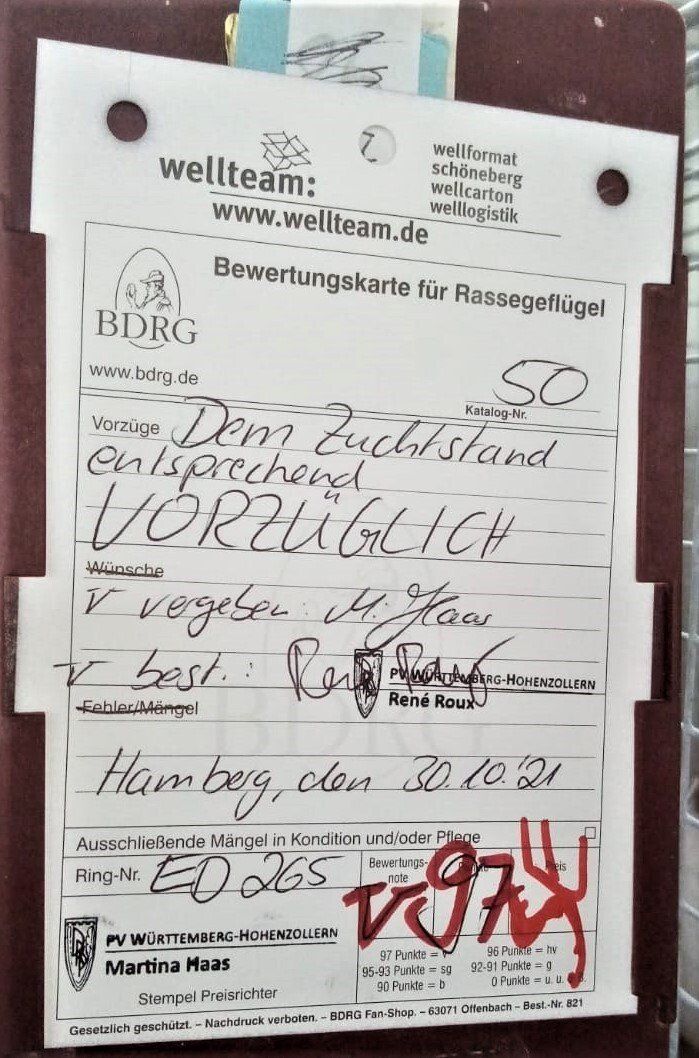 wellteam:
www.wellteam.de
wellformat
schöneberg
wellcarton
welllogistik
BDRG
www.bdrg.de
Bewertungskarte für Rassegeflügel
50
Katalog-Nr.
Vorzüge Dem Zuchtstand
entsprechend
VORZÜGLICH
Wünsche
V vergeben: M. Haas
V best.: René Roux
PV WÜRTTEMBERG-HOHENZOLLERN
René Roux
Fehler/Mängel
BDRG
Hamberg, den 30.10.'21
Ausschließende Mängel in Kondition und/oder Pflege
Ring-Nr. EO 265
Bewertungs-
note
Punkte
Preis
V 97
PV WÜRTTEMBERG-HOHENZOLLERN
Martina Haas
Stempel Preisrichter
97 Punkte = v
96 Punkte = hv
95-93 Punkte = sg
92-91 Punkte = g
90 Punkte = b
0 Punkte = u. u.
Gesetzlich geschützt. – Nachdruck verboten. – BDRG Fan-Shop. – 63071 Offenbach – Best.-Nr. 821